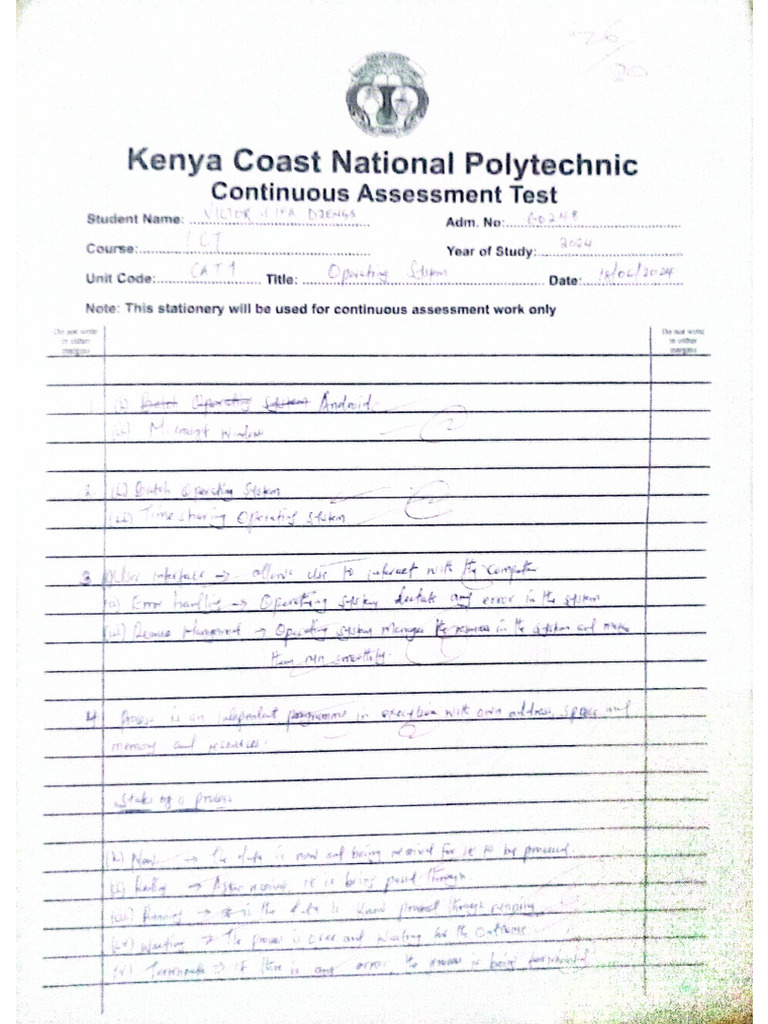 20
Kenya Coast National Polytechnic
Continuous Assessment Test
Student Name: VICTOR DZENGO
Adm. No: 60248
Course: ICT
Year of Study: 2024
Unit Code: CAT 1 Title: Operating System Date: 18/06/2024
Note: This stationery will be used for continuous assessment work only
Do not write in either margins
Do not write in either margins
1. (i) Batch Operating System Android
(ii) Microsoft Windows
2
2. (i) Batch Operating System
(ii) Time sharing Operating System
3 User interface → allows use to interact with the computer
(ii) Error handling → Operating system error in the system
(iii) Management → Operating system manages the in the system and make
them run smoothly.
4 Process is an independent programme in execution with own address space and
memory and resources.
States of a process
(i) New → The data is now being received for it to be processed.
(ii) Ready → After it is being passed through
(iii) Running → is the data is know through
(iv) Waiting → The process is over and waiting for the outcome
(v) Terminate → If there is any error the process is being terminated